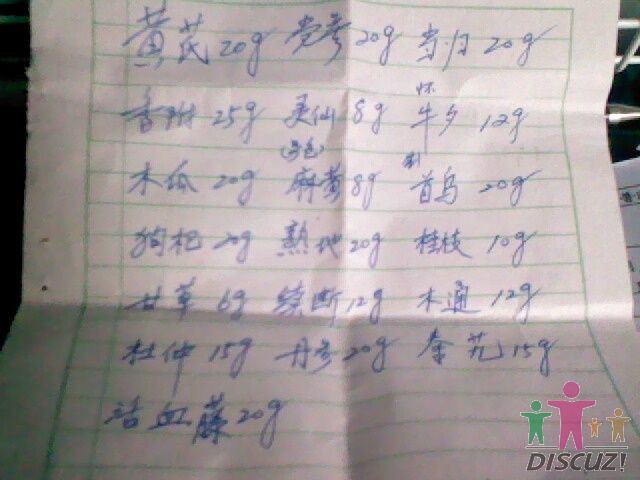 黄芪20g 党参20g 当归20g
怀
香附25g 灵仙8g 牛夕12g
制
木瓜20g 麻黄8g 首乌20g
狗杞20g 熟地20g 桂枝10g
甘草6g 续断12g 木通12g
杜仲15g 丹参20g 秦艽15g
活血藤20g
DISCUZ!